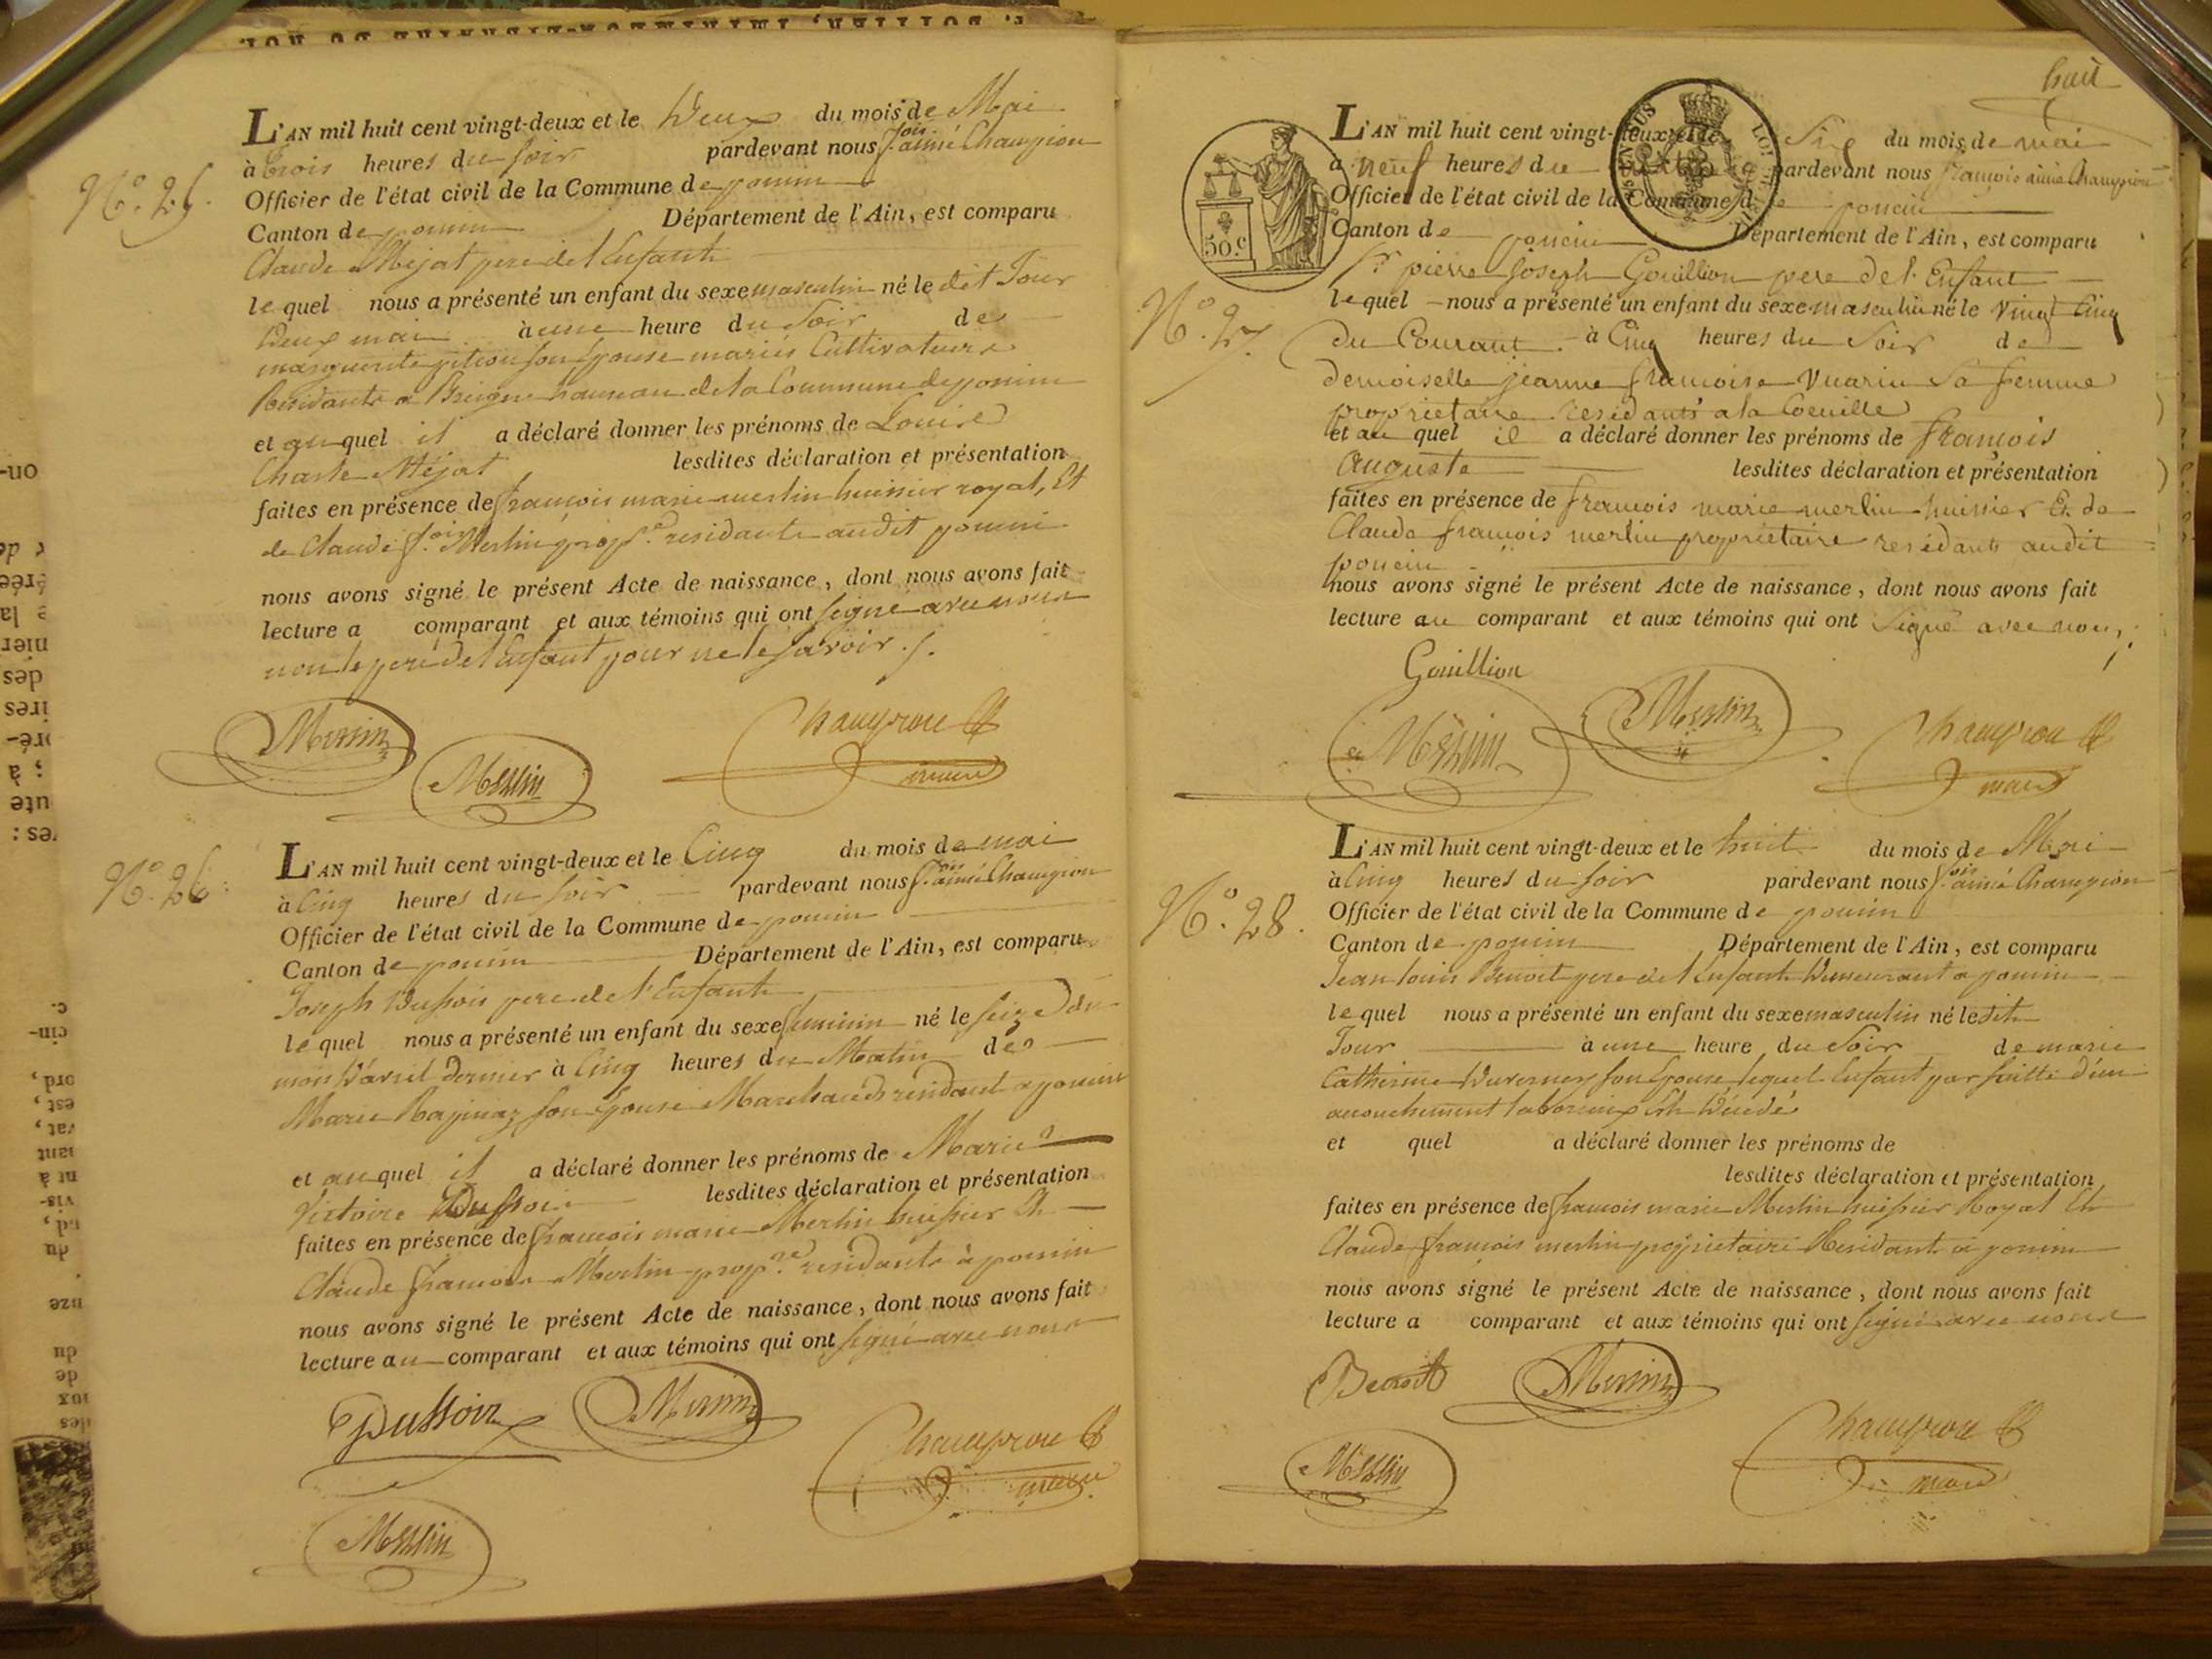 N.º 25.
L'AN mil huit cent vingt-deux et le Deux du mois de Mai
à trois heures du soir pardevant nous f.ois aimé Champion
Officier de l'état civil de la Commune de poncin
Canton de poncin Département de l'Ain, est comparu
Claude Méjat pere de l'Enfant
le quel nous a présenté un enfant du sexe masculin né le dit Jour
Deux mai à une heure du Soir de
marguerite pition son Epouse mariés Cultivateurs
Residants a Breigne hameau de la Commune de poncin
et au quel il a déclaré donner les prénoms de Louis
Charle Méjat lesdites déclaration et présentation
faites en présence de françois marie merlin huissier royal, Et
de Claude f.ois Merlin prop.re residants audit poncin
nous avons signé le présent Acte de naissance, dont nous avons fait
lecture a comparant et aux témoins qui ont signé avec nous
non le pere de l'Enfant pour ne le savoir ./.
Merlin
Merlin
Champion
maire
N.º 26.
L'AN mil huit cent vingt-deux et le Cinq du mois de mai
à Cinq heures du soir pardevant nous f.ois aimé Champion
Officier de l'état civil de la Commune de poncin
Canton de poncin Département de l'Ain, est comparu
Joseph Dussoir pere de l'Enfant
le quel nous a présenté un enfant du sexe feminin né le seize du
mois d'avril dernier à Cinq heures du Matin de
Marie son Epouse Marchands residant a poncin
et au quel il a déclaré donner les prénoms de Marie
Victoire Dussoir lesdites déclaration et présentation
faites en présence de françois marie Merlin huissier Et
Claude francois Merlin prop.re residants à poncin
nous avons signé le présent Acte de naissance, dont nous avons fait
lecture au comparant et aux témoins qui ont signé avec nous
Dussoir
Merlin
Champion
maire
Merlin
huit
50.c
N.º 27.
L'AN mil huit cent vingt-deux et le Six du mois de mai
a neuf heures du pardevant nous françois aimé Champion
Officier de l'état civil de la Commune de poncin
Canton de poncin Département de l'Ain, est comparu
S.r pierre Joseph Gouillion pere de l'Enfant
le quel nous a présenté un enfant du sexe masculin né le vingt Cinq
du Courant à Cinq heures du Soir de
demoiselle jeanne francoise Vuarin sa femme
proprietaire residants a la Coeuille
et au quel il a déclaré donner les prénoms de françois
Auguste lesdites déclaration et présentation
faites en présence de francois marie merlin huissier Et de
Claude francois merlin proprietaire residants audit
poncin
nous avons signé le présent Acte de naissance, dont nous avons fait
lecture au comparant et aux témoins qui ont Signé avec nous
Gouillion
Merlin
Merlin
Champion
maire
N.º 28.
L'AN mil huit cent vingt-deux et le huit du mois de Mai
à Cinq heures du soir pardevant nous f.ois aimé Champion
Officier de l'état civil de la Commune de poncin
Canton de poncin Département de l'Ain, est comparu
Jean louis Benoit pere de l'Enfant Demeurant a poncin
le quel nous a présenté un enfant du sexe masculin né le dit
Jour à une heure du Soir de marie
Catherine Duverney son Epouse lequel Enfant par suitte d'un
acouchement laborieux Est Décédé
et quel a déclaré donner les prénoms de
lesdites déclaration et présentation
faites en présence de francois marie Merlin huissier Royal Et
Claude francois merlin proprietaire Residant a poncin
nous avons signé le présent Acte de naissance, dont nous avons fait
lecture a comparant et aux témoins qui ont signé avec nous
Benoit
Merlin
Merlin
Champion
maire